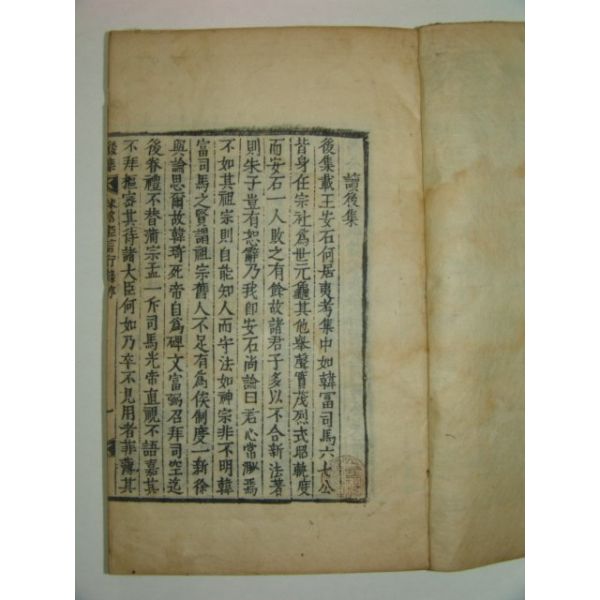 讀後集
後集載王安石何居夷考集中如韓富司馬六七公
皆身任宗社爲世元龜其他舉聲實茂烈式昭軌度
而安石一人敗之有餘故諸君子多以不合新法著
則朱子豈有恕辭乃我師安石尚論曰君心當
不如其祖宗則自能知人而守法如神宗非不明韓
富司馬之賢謂祖宗舊人不足有爲俟制度一新徐
與論思爾故韓琦死帝自爲碑文富弼召拜司空迄
後眷禮不替蒲宗孟一斥司馬光帝直視不語嘉其
不拜樞密其待諸大臣何如乃卒不見用者非薄其
後集 宋名臣言行錄序